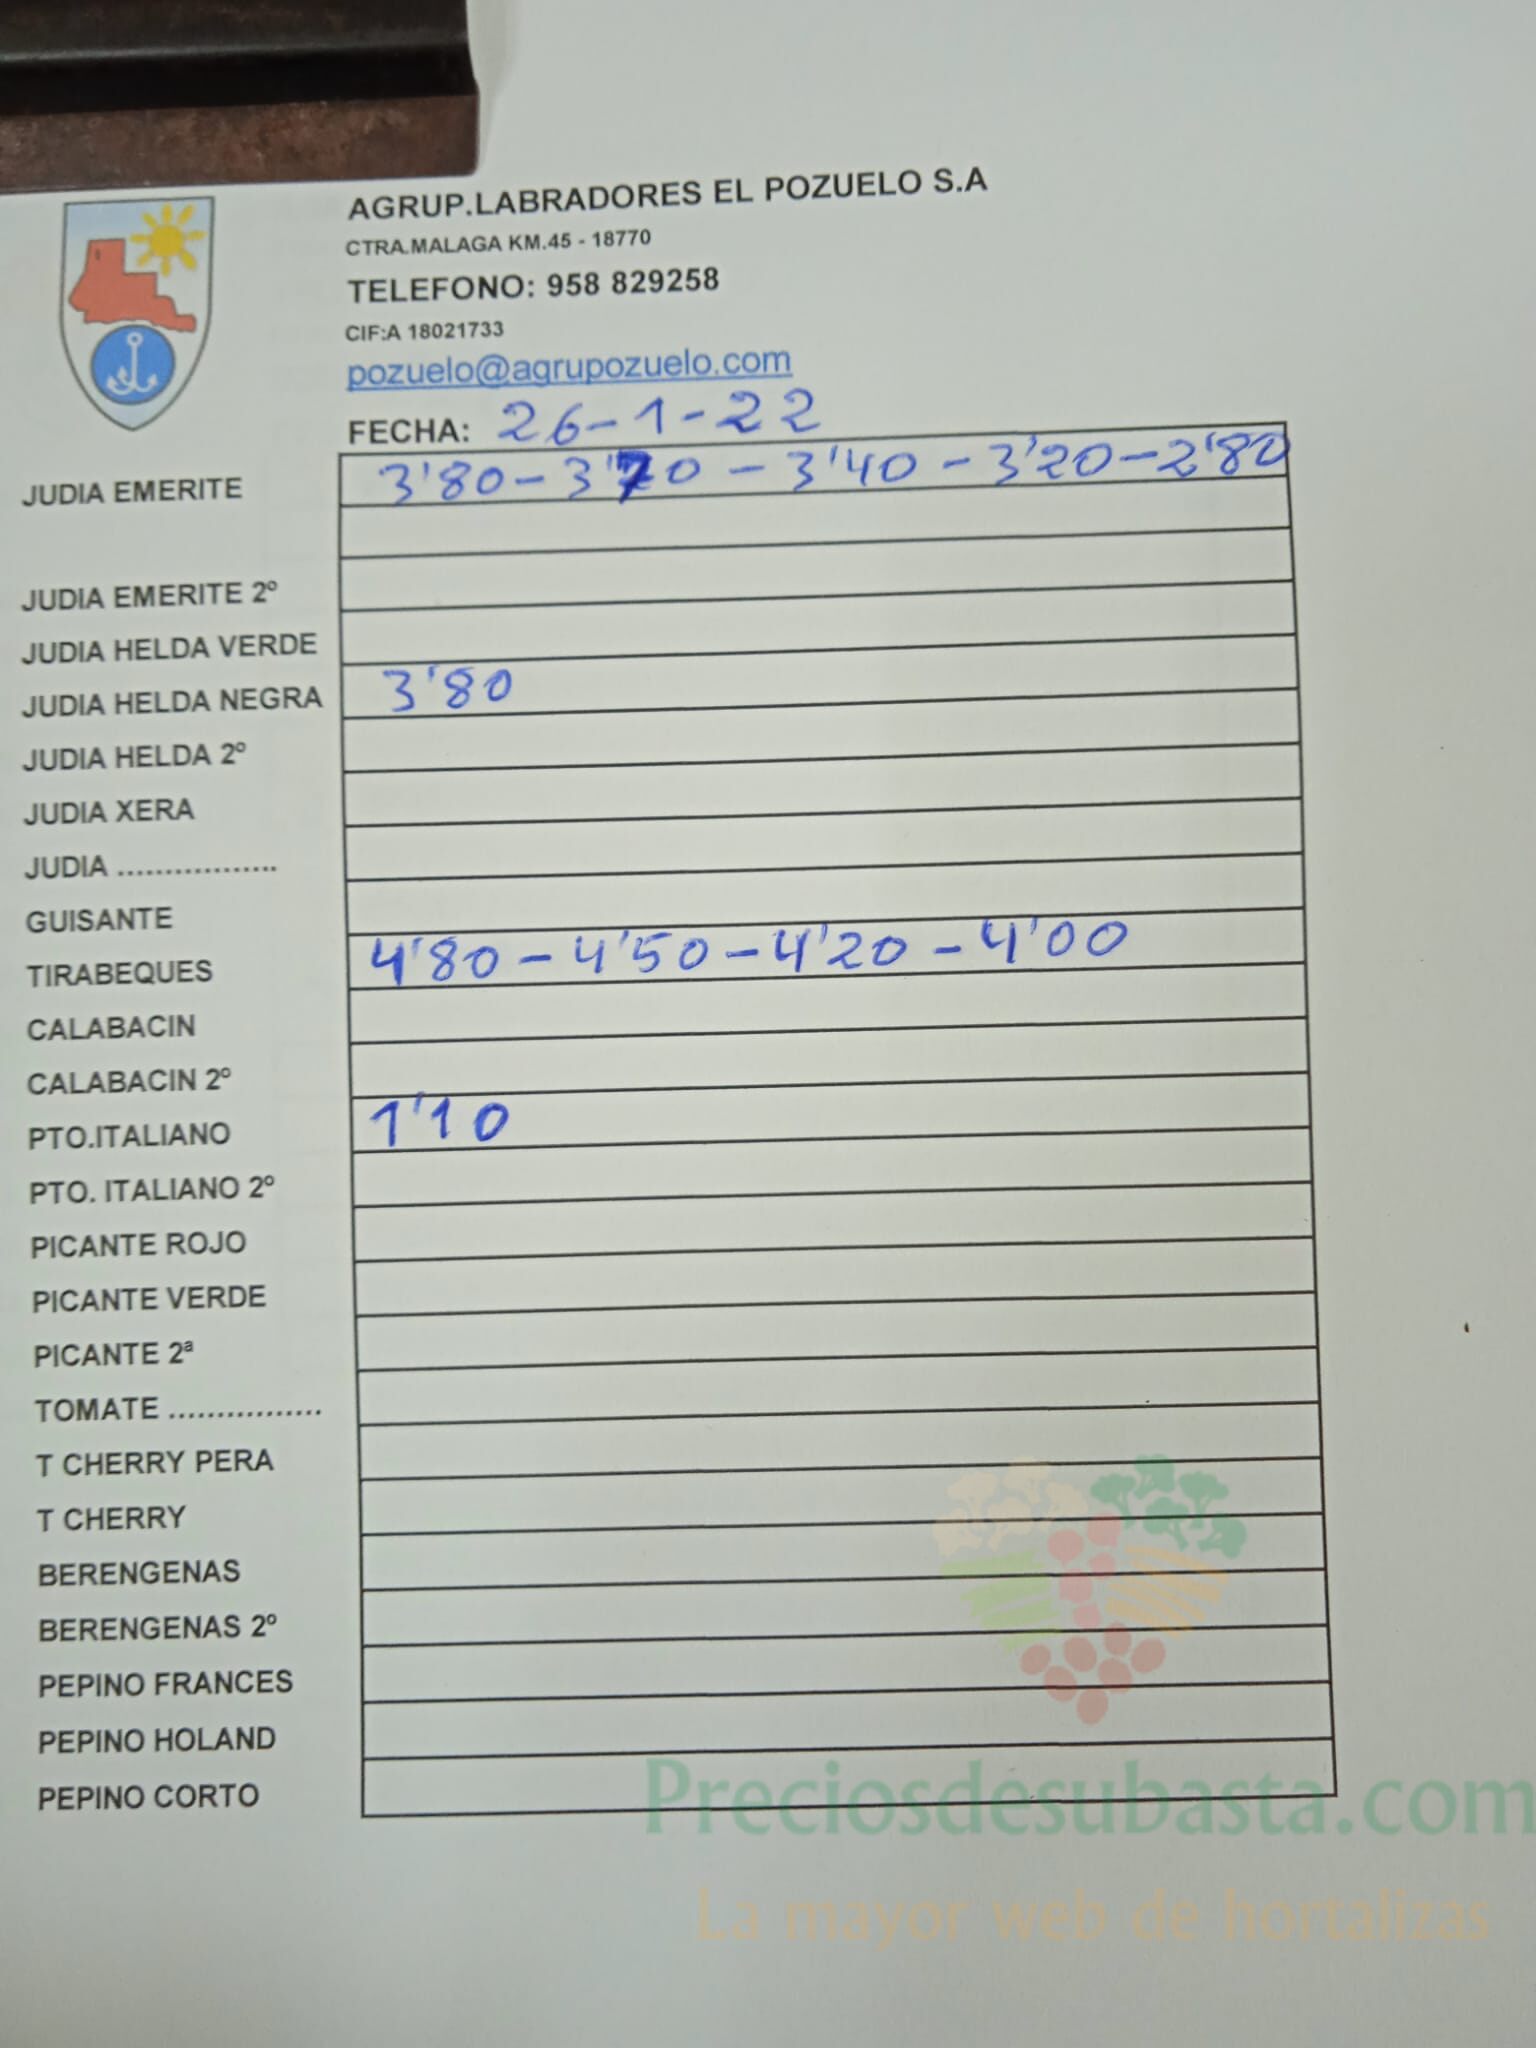 AGRUP.LABRADORES EL POZUELO S.A
CTRA.MALAGA KM.45 - 18770
TELEFONO: 958 829258
CIF:A 18021733
pozuelo@agrupozuelo.com
FECHA: 26-1-22
JUDIA EMERITE 3'80 - 3'70 - 3'40 - 3'20 - 2'80
JUDIA EMERITE 2º
JUDIA HELDA VERDE
JUDIA HELDA NEGRA 3'80
JUDIA HELDA 2º
JUDIA XERA
JUDIA .................
GUISANTE
TIRABEQUES 4'80 - 4'50 - 4'20 - 4'00
CALABACIN
CALABACIN 2º
PTO.ITALIANO 1'10
PTO. ITALIANO 2º
PICANTE ROJO
PICANTE VERDE
PICANTE 2ª
TOMATE ................
T CHERRY PERA
T CHERRY
BERENGENAS
BERENGENAS 2º
PEPINO FRANCES
PEPINO HOLAND
PEPINO CORTO
Preciosdesubasta.com
La mayor web de hortalizas